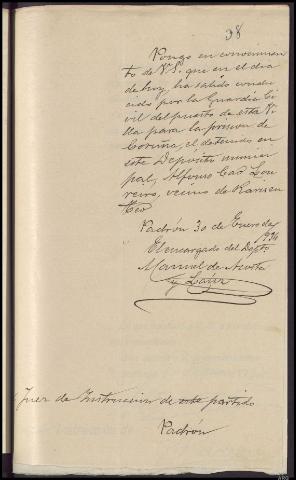 38
Pongo en conocimien
to de V.S. que en el dia
de hoy, ha salido condu
cido por la Guardia Ci
vil del puesto de esta Vi
lla para la prision de
Coruña, el detenido en
este Depósito munici
pal, Alfonso Cao Lou
reiro, vecino de
Teo
Padrón 30 de Enero de
1934
El encargado del Depto
Manuel de
y
Juez de Instruccion de este partido
Padrón